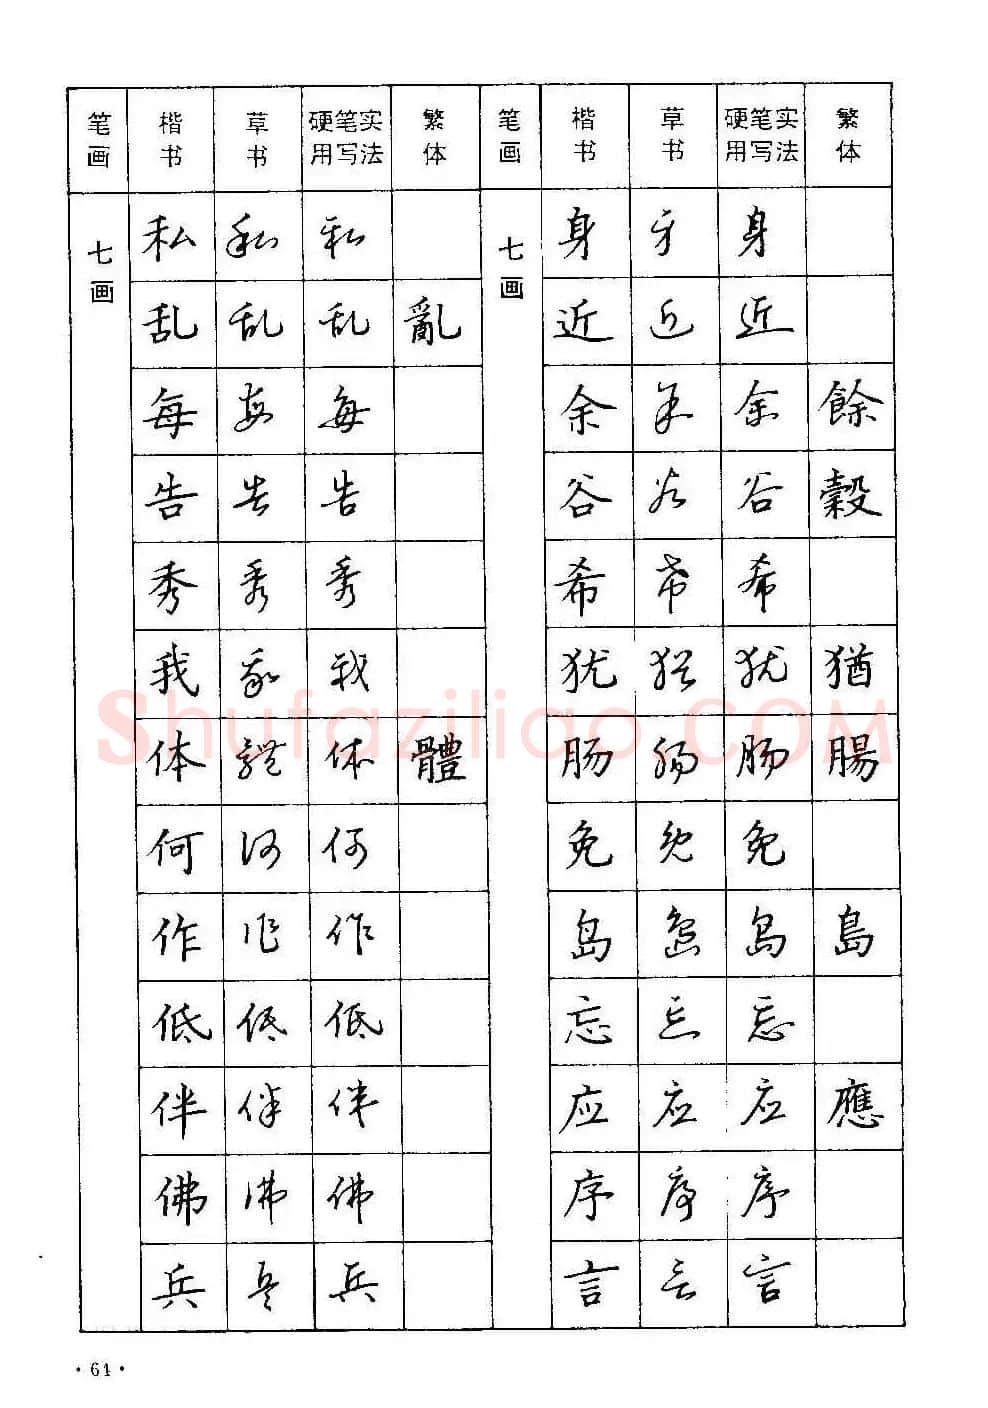 笔画 楷书 草书 硬笔实用写法 繁体 笔画 楷书 草书 硬笔实用写法 繁体
七画 私 私 私 七画 身 身 身
乱 乱 乱 亂 近 近 近
每 每 每 余 余 余 餘
告 告 告 谷 谷 谷 穀
秀 秀 秀 希 希 希
我 我 我 犹 犹 犹 猶
体 体 体 體 肠 肠 肠 腸
何 何 何 免 免 免
作 作 作 岛 岛 岛 島
低 低 低 忘 忘 忘
伴 伴 伴 应 应 应 應
佛 佛 佛 序 序 序
兵 兵 兵 言 言 言
Shufaziliao.COM
·64·